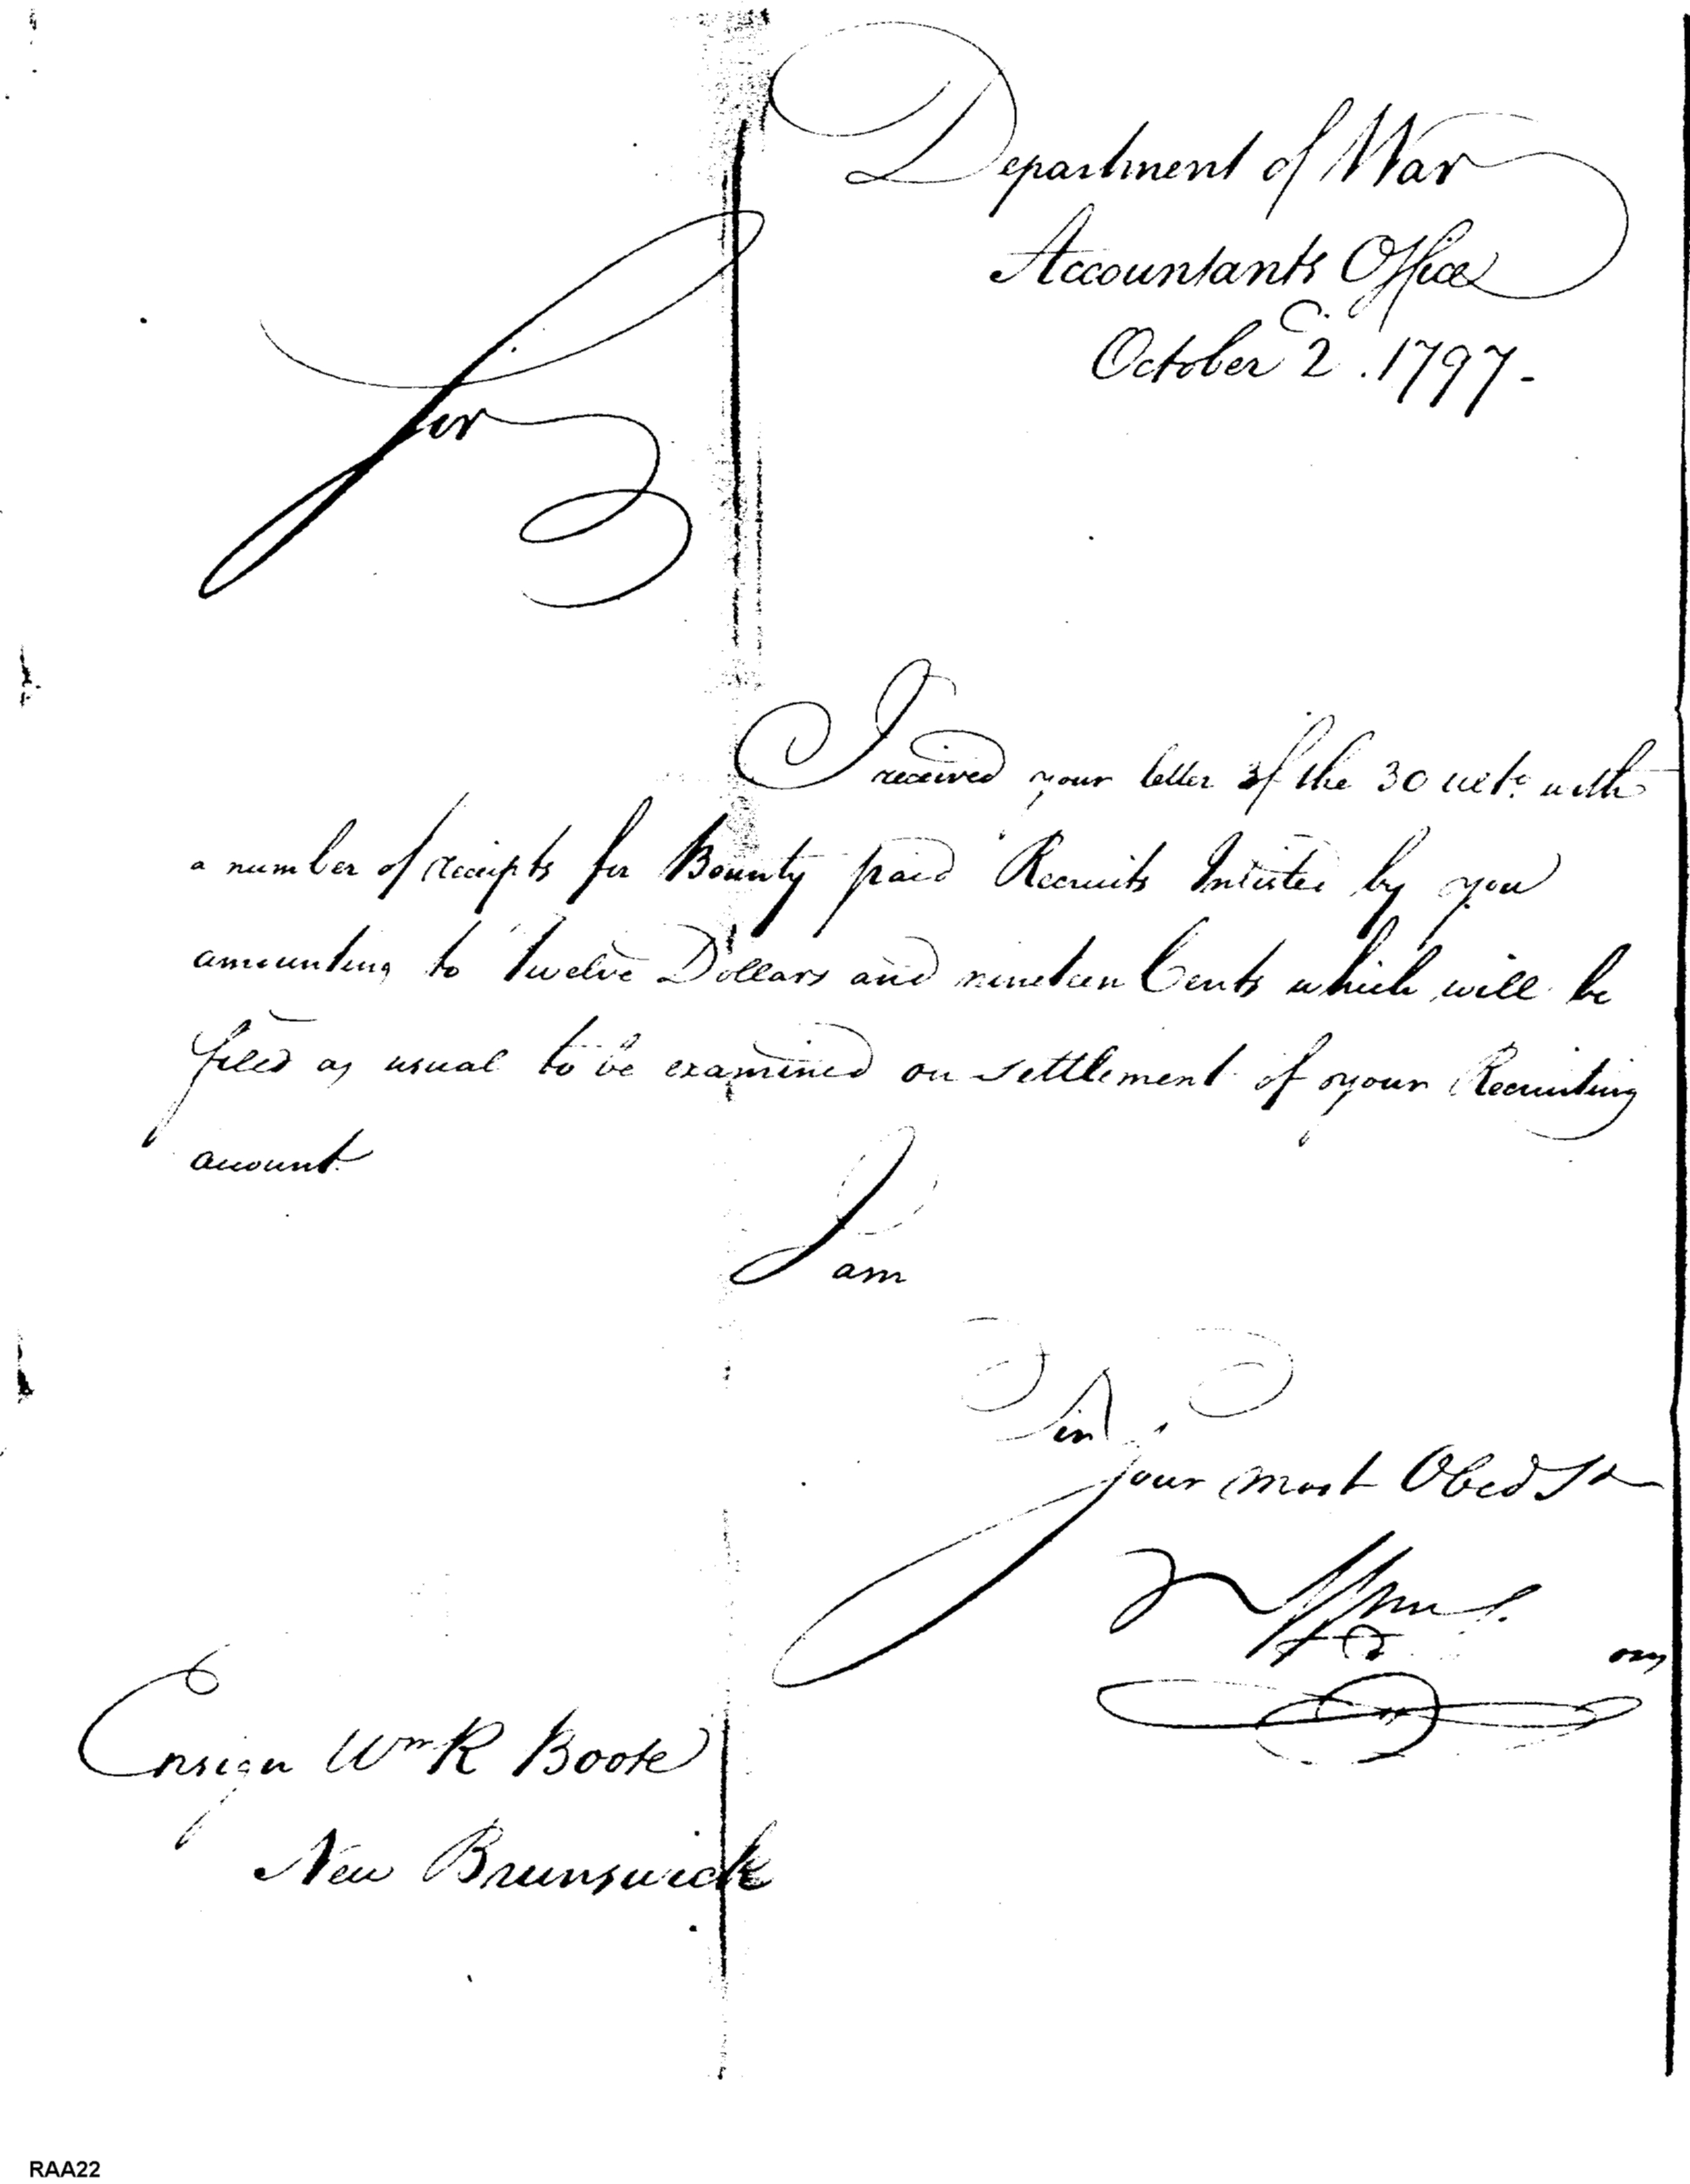 Department of War
Accountants Office
October 2d. 1797.
Sir
I received your letter of the 30 ulto. with
a number of receipts for Bounty paid Recruits Inlisted by you
amounting to Twelve Dollars and nineteen Cents which will be
filed as usual to be examined on settlement of your Recruiting
account.
I am
Sir
Your most Obed St
Ensign Wm R Boote
New Brunswick
RAA22